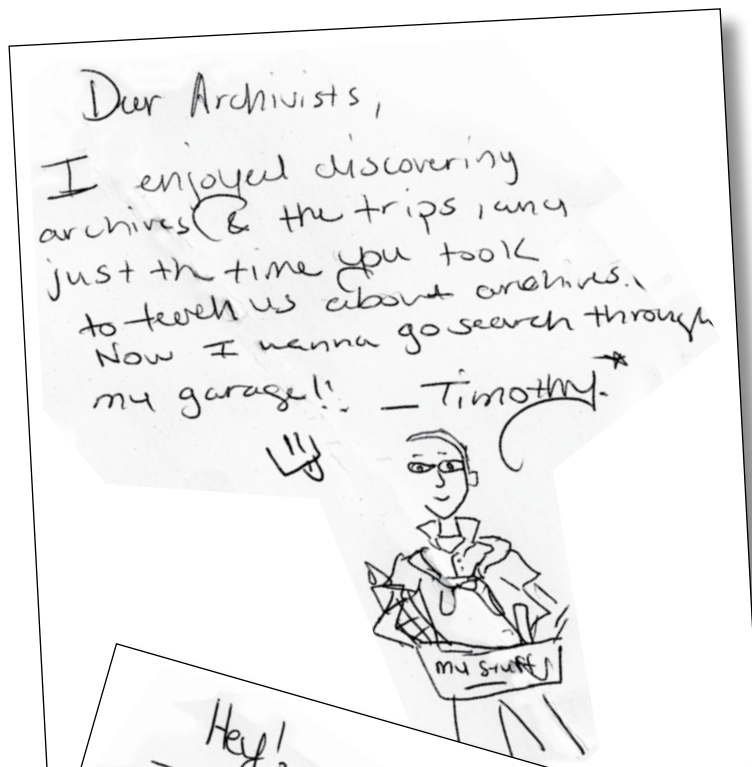 Dear Archivists,
I enjoyed discovering
archives & the trips, and
just the time you took
to teach us about archives.
Now I wanna go search through
my garage!! — Timothy.
my stuff
Hey!